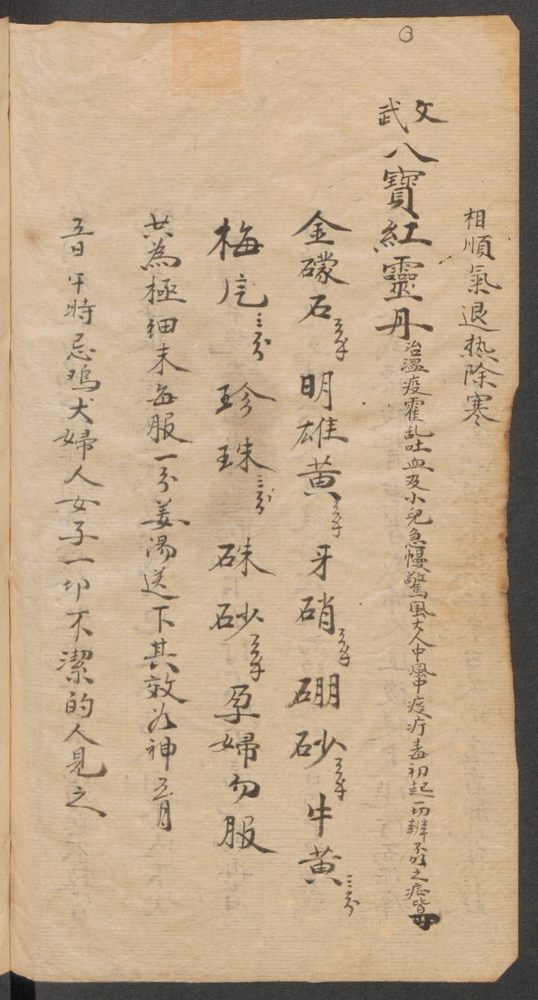 相順氣退热除寒
文武八寶紅靈丹治溫疫霍乱吐血及小兒急慢驚風大人中風中痰疔毒初起一切辨不明之症皆
金礞石 明雄黃 牙硝 硼砂 牛黃三分
梅片三分 珍珠三分 硃砂 孕婦勿服
共為極細末每服一分姜湯送下其效如神五月
五日午時忌鸡犬婦人女子一切不潔的人見之